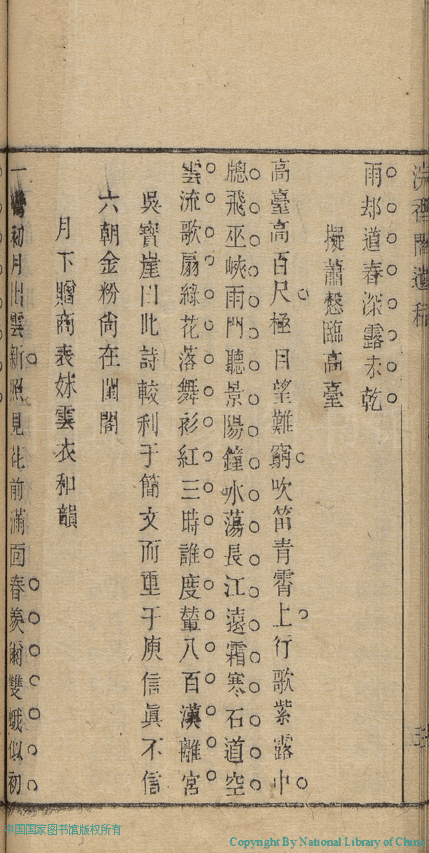 閣遺稿
雨却道春深露未乾
擬蕭愨臨高臺
高臺高百尺極目望難窮吹笛青霄上行歌紫露中
牕飛巫峽雨門聽景陽鐘水蕩長江遠霜寒石道空
雲流歌扇綠花落舞衫紅三時誰度輦八百漢離宮
吳寶崖曰此詩較利于簡文而重于庾信眞不信
六朝金粉尙在閨閣
月下贈商裴妹雲衣和韻
一彎初月出雲新照見花前滿面春羨爾雙蛾似初
中国国家图书馆版权所有
Copyright By National Library of China